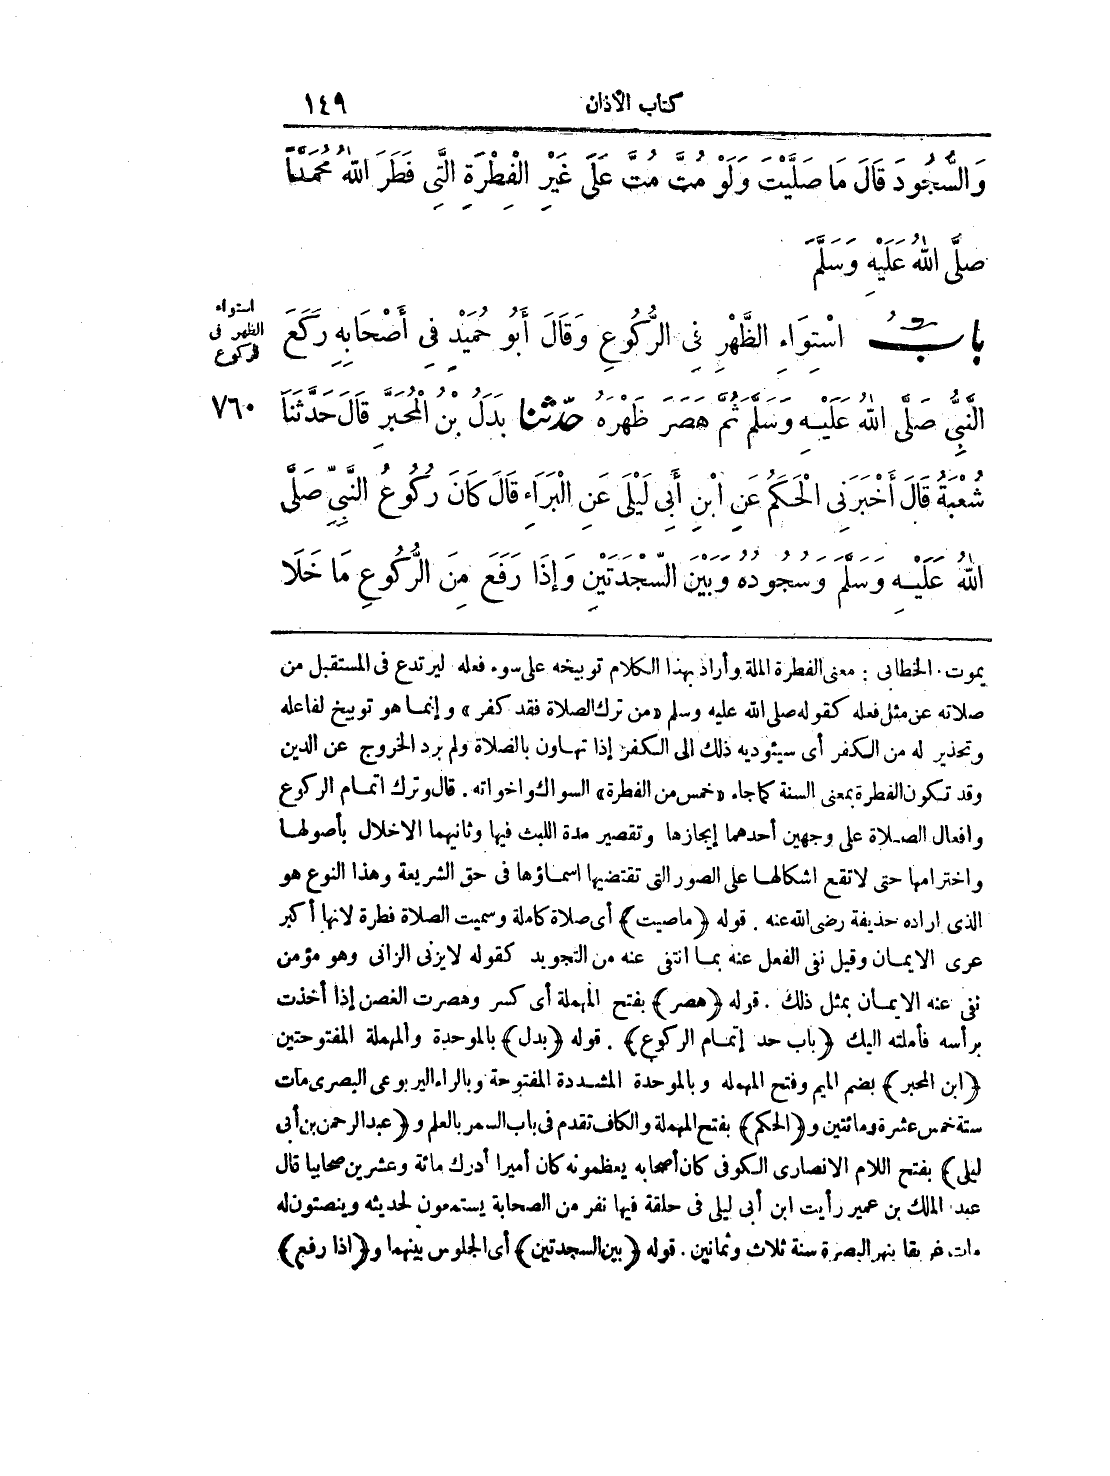 كتاب الأذان ١٤٩
وَالسُّجُودَ قَالَ مَا صَلَّيْتَ وَلَوْ مُتَّ مُتَّ عَلَى غَيْرِ الْفِطْرَةِ الَّتِي فَطَرَ اللهُ مُحَمَّدًا
صَلَّى اللهُ عَلَيْهِ وَسَلَّمَ
استواء
الظهر فى
الركوع
بابُ اسْتِوَاءِ الظَّهْرِ فِى الرُّكُوعِ وَقَالَ أَبُو حُمَيْدٍ فِى أَصْحَابِهِ رَكَعَ
النَّبِىُّ صَلَّى اللهُ عَلَيْهِ وَسَلَّمَ ثُمَّ هَصَرَ ظَهْرَهُ حَدَّثَنَا بَدَلُ بْنُ الْمُحَبَّرِ قَالَ حَدَّثَنَا ٧٦٠
شُعْبَةُ قَالَ أَخْبَرَنِى الْحَكَمُ عَنِ ابْنِ أَبِى لَيْلَى عَنِ الْبَرَاءِ قَالَ كَانَ رُكُوعُ النَّبِىِّ صَلَّى
اللهُ عَلَيْهِ وَسَلَّمَ وَسُجُودُهُ وَبَيْنَ السَّجْدَتَيْنِ وَإِذَا رَفَعَ مِنَ الرُّكُوعِ مَا خَلَا
يموت. الخطابى : معنى الفطرة الملة وأراد بهذا الكلام توبيخه على سوء فعله ليرتدع فى المستقبل من
صلاته عن مثل فعله كقوله صلى الله عليه وسلم «من ترك الصلاة فقد كفر» وإنما هو توبيخ لفاعله
وتحذير له من الكفر أى سيئوديه ذلك الى الكفر إذا تهاون بالصلاة ولم يرد الخروج عن الدين
وقد تكون الفطرة بمعنى السنة كما جاء «خمس من الفطرة» السواك واخواته. قال وترك اتمام الركوع
وافعال الصلاة على وجهين أحدهما إيجازها وتقصير مدة اللبث فيها وثانيهما الاخلال بأصولها
واخترامها حتى لا تقع اشكالها على الصور التى تقتضيها اسماؤها فى حق الشريعة وهذا النوع هو
الذى اراده حذيفة رضى الله عنه . قوله ﴿ماصيت﴾ أى صلاة كاملة وسميت الصلاة فطرة لانها أكبر
عرى الايمان وقيل نفى الفعل عنه بما انتفى عنه من التجويد كقوله لا يزنى الزانى وهو مؤمن
نفى عنه الايمان بمثل ذلك . قوله ﴿هصر﴾ بفتح المهملة أى كسر وهصرت الغصن إذا أخذت
برأسه فأملته اليك ﴿باب حد إتمام الركوع﴾ . قوله ﴿بدل﴾ بالموحدة والمهملة المفتوحتين
﴿ابن المحبر﴾ بضم الميم وفتح المهمله وبالموحدة المشددة المفتوحة وبالراء اليربوعى البصرى مات
سنة خمس عشرة ومائتين و﴿الحكم﴾ بفتح المهملة والكاف تقدم فى باب السمر بالعلم و﴿عبد الرحمن بن أبى
ليلى﴾ بفتح اللام الانصارى الكوفى كان أصحابه يعظمونه كان أميرا أدرك مائة وعشرين صحابيا قال
عبد الملك بن عمير رأيت ابن أبى ليلى فى حلقة فيها نفر من الصحابة يستمعون لحديثه وينصتون له
مات غريقا بنهر البصرة سنة ثلاث وثمانين. قوله ﴿بين السجدتين﴾ أى الجلوس بينهما و﴿اذا رفع﴾